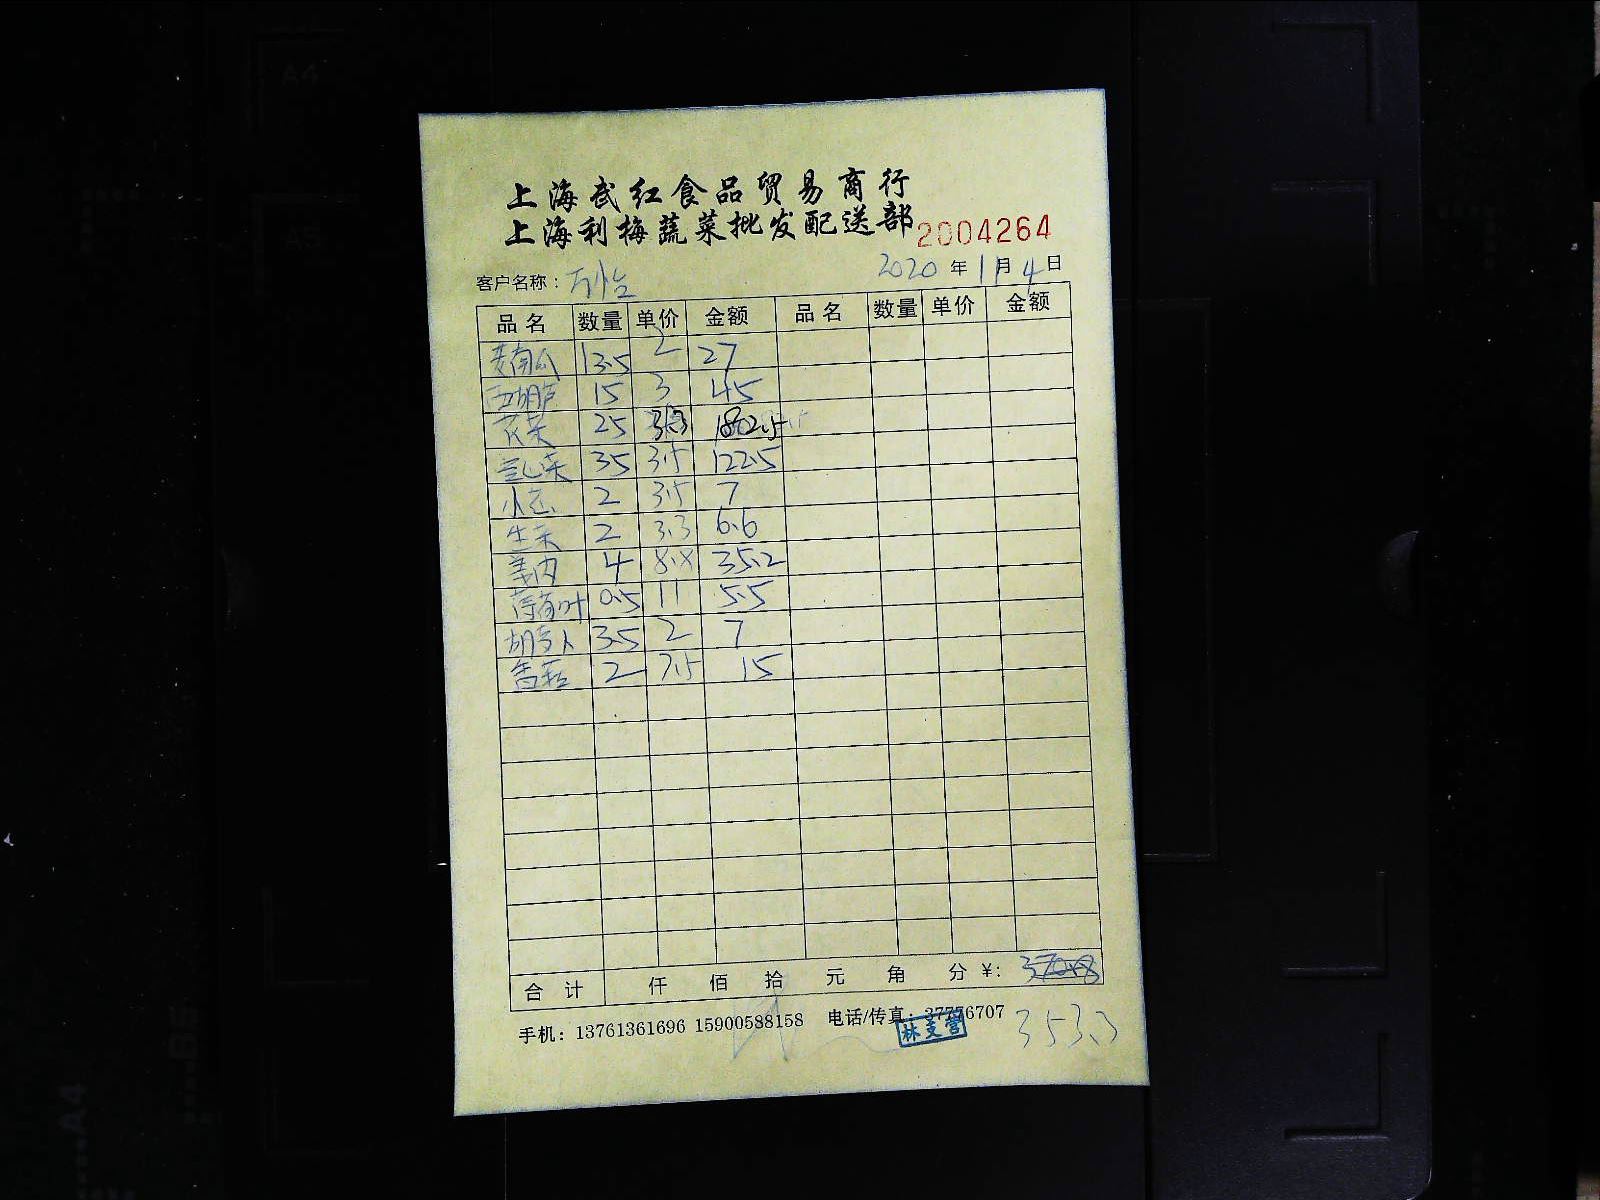 上海武红食品贸易商行
上海利梅蔬菜批发配送部 2004264
客户名称：万怡 2020年11月4日
品名 数量 单价 金额 品名 数量 单价 金额
麦南瓜 13.5 2 27
西胡芦 15 3 45
花菜 25 3.3 82.5
包心菜 35 3.5 122.5
小芯 2 3.5 7
生菜 2 3.3 6.6
姜肉 4 8.8 35.2
薄荷叶 0.5 11 5.5
胡萝卜 3.5 2 7
香菇 2 7.5 15
合计 仟 佰 拾 元 角 分 ¥: 370.8
手机：13761361696 15900588158 电话/传真：37776707 353.3
林支营